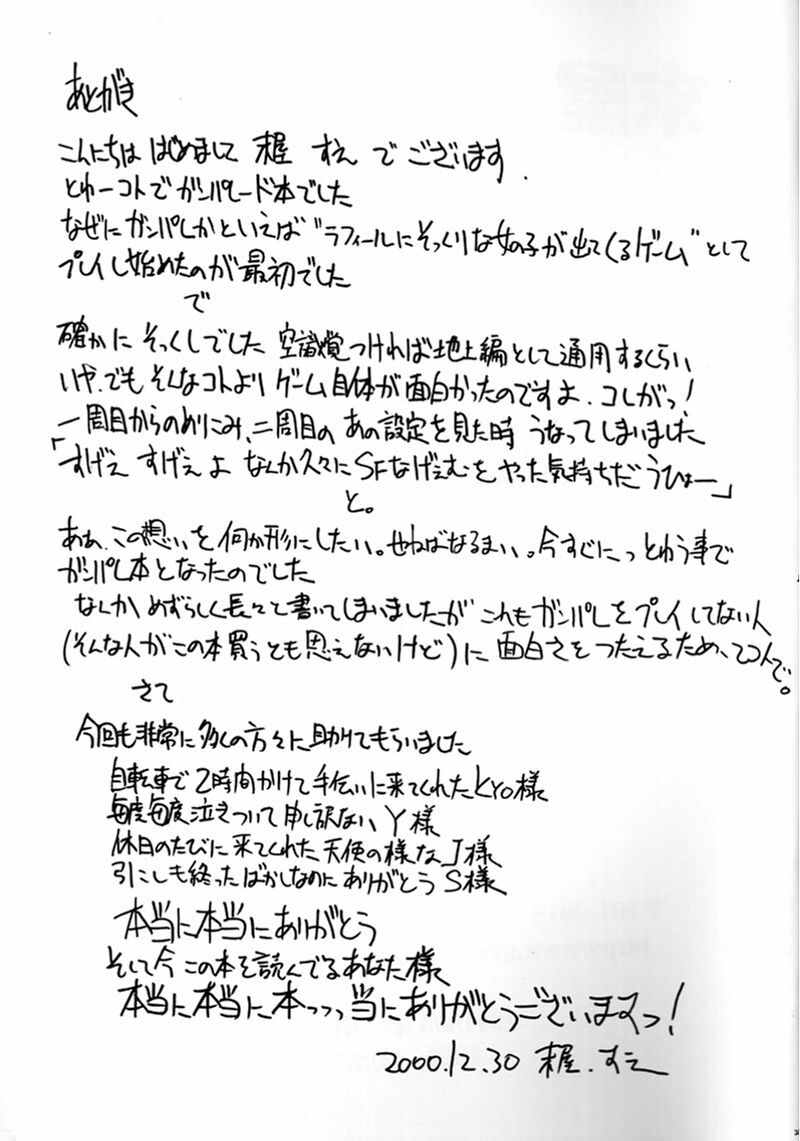 あとがき
こんにちは はじめまして 屋 すえ でございます
とゆーコトでガンパレード本でした
なぜにガンパレかといえば"ラフィールにそっくりな女の子が出てくるゲーム"として
プレイし始めたのが最初でした
で
確かに そっくしでした 空識覚つければ地上編として通用するくらい
いや、でも そんなコトより ゲーム自体が面白かったのですよ、コレがっ!
一周目からのめりこみ、二周目の あの設定を見た時 うなってしまいました
「すげえ すげぇよ なんか久々にSFなげぇむをやった気持ちだ うひょー」
と。
ああ、この想いを何か形にしたい。せねばなるまい。今すぐにっ とゆう事で
ガンパレ本となったのでした
なんか めずらしく長々と書いてしまいましたが これもガンパレをプレイしてない人
(そんな人がこの本買うとも思えないけど)に 面白さをつたえるため、てコトで。
さて
今回も非常に多くの方々に助けてもらいました
自転車で2時間かけて手伝いに来てくれたKYO様
毎度毎度泣きついて申し訳ないY様
休日のたびに来てくれた天使の様なJ様
引こしも終ったばかしなのにありがとうS様
本当に本当にありがとう
そして今 この本を読んでるあなた様
本当に本当に本っっっ当にありがとうございますっ!
2000.12.30 屋.すえ